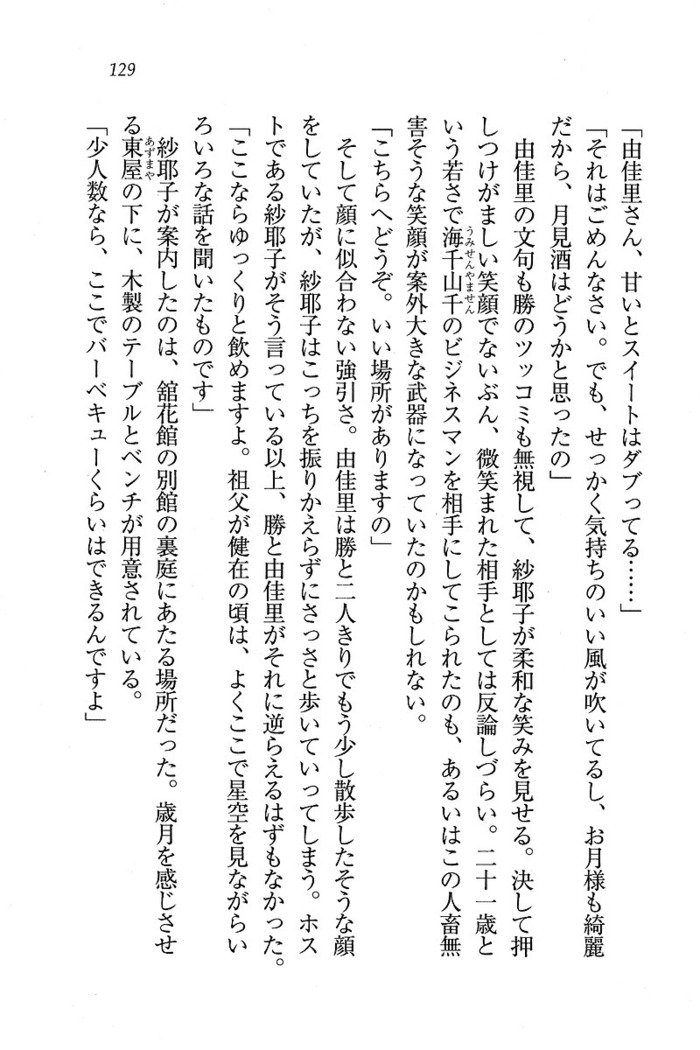 129
「由佳里さん、甘いとスイートはダブってる……」
「それはごめんなさい。でも、せっかく気持ちのいい風が吹いてるし、お月様も綺麗
だから、月見酒はどうかと思ったの」
　由佳里の文句も勝のツッコミも無視して、紗耶子が柔和な笑みを見せる。決して押
しつけがましい笑顔でないぶん、微笑まれた相手としては反論しづらい。二十一歳と
いう若さで海千山千のビジネスマンを相手にしてこられたのも、あるいはこの人畜無
うみせんやません
害そうな笑顔が案外大きな武器になっていたのかもしれない。
「こちらへどうぞ。いい場所がありますの」
　そして顔に似合わない強引さ。由佳里は勝と二人きりでもう少し散歩したそうな顔
をしていたが、紗耶子はこっちを振りかえらずにさっさと歩いていってしまう。ホス
トである紗耶子がそう言っている以上、勝と由佳里がそれに逆らえるはずもなかった。
「ここならゆっくりと飲めますよ。祖父が健在の頃は、よくここで星空を見ながらい
ろいろな話を聞いたものです」
　紗耶子が案内したのは、舘花館の別館の裏庭にあたる場所だった。歳月を感じさせ
る東屋の下に、木製のテーブルとベンチが用意されている。
あずまや
「少人数なら、ここでバーベキューくらいはできるんですよ」